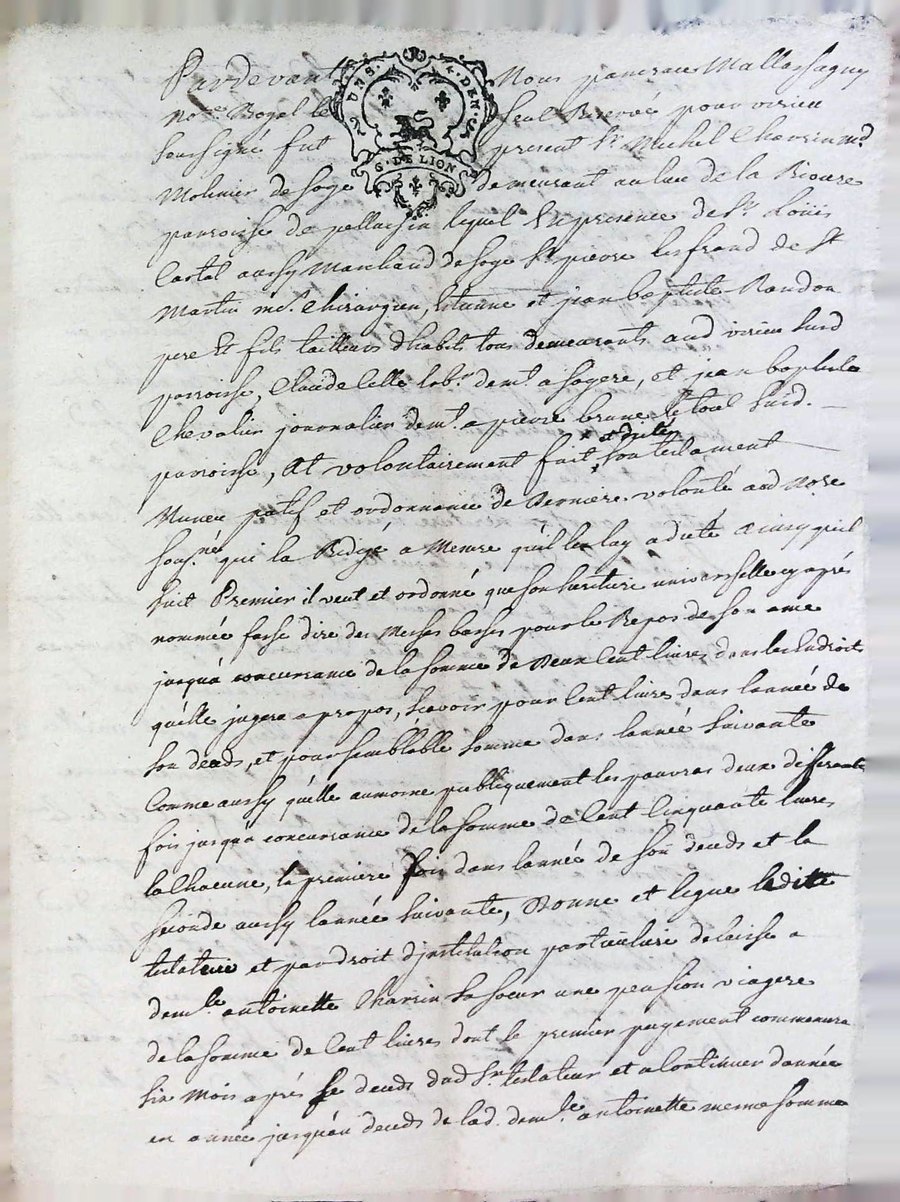 Pardevant Nous pancrace Mallassagny
no.re Royal le seul Reservé pour virieu
soussigné fut present Sr Michel Charrin md
Molinier de soye demeurant au lieu de la Rivoire
parroisse de pellussin lequel En presence de Sr Loüis
Castel aussy Marchand de soye Sr pierre lesfrand de St
Martin me. Chirurgien, Etienne et jean baptiste Randon
pere Et fils tailleurs d'habits tous demeurants aud virieu susd
parroisse, Claude Celle lab.r dem.t a sagere, et jean baptiste
Chevalier journalier dem.t a pierre brune le tout susd.
parroisse, At volontairement fait et dicté son testament
Nuncu patif et ordonnance de Derniere volonté aud No.re
sous.né qui la Redigé a Mesure qu'il les luy a dicté Ainsy qu'il
suit Premier il veut et ordonné que son heritiere universselle cy apré
nommée fasse dire des Messes basses pour le Repos de son ame
jusqua concurrance de la somme de Deux Cent livres dans les Endroit
qu'elle jugera a propos, scavoir pour Cent livres dans l'année de
son deceds, et pour semblable somme dans l'année suivante
Comme aussy qu'elle aumone publiquement les pauvres deux differente
fois jusqua concurrance de la somme de Cent Cinquante livres
la Chacune, la premiere fois dans l'année de son deceds et la
seconde aussy l'année suivante, Donne et legue ledite
testateur et par droit d'jnstitution particuliere delaisse a
dem.lle antoinette Charrin sa soeur une pension viagere
de la somme de Cent livres dont le premier payement commencera
six Mois aprés le deceds dud Sr. testateur et a Continuer d'année
en année jusqu'au deceds de lad. dem.lle antoinette meme somme
UNS. DEN.
G. DE LION